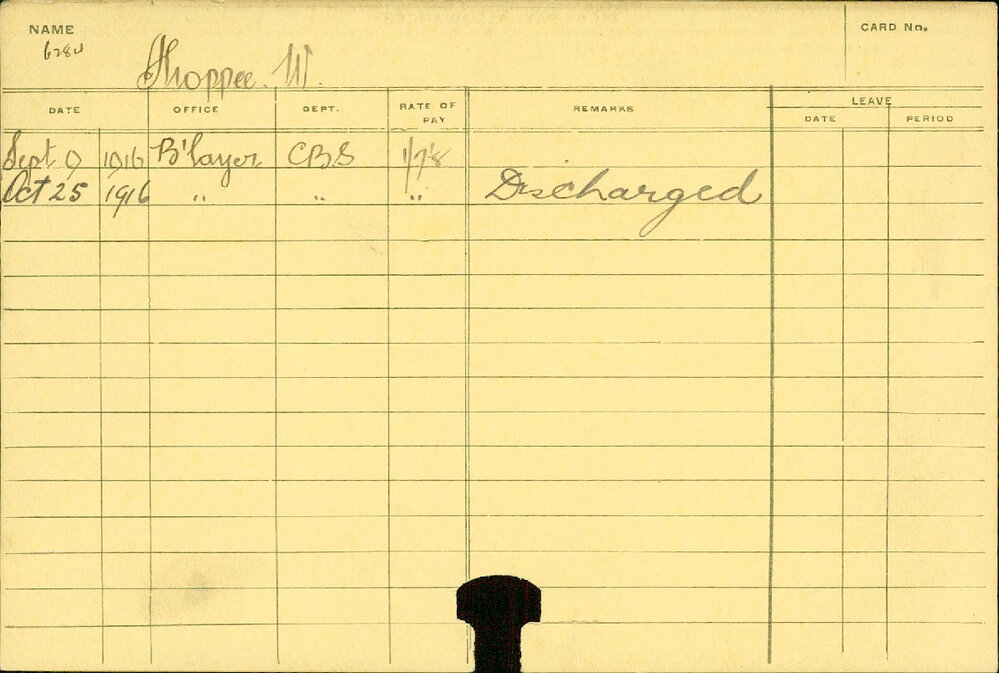 NAME
CARD No.
Shoppee. W.
DATE OFFICE DEPT. RATE OF PAY REMARKS LEAVE
DATE PERIOD
Sept 9 1916 B'layer CBS
Oct 25 1916 " " " Discharged